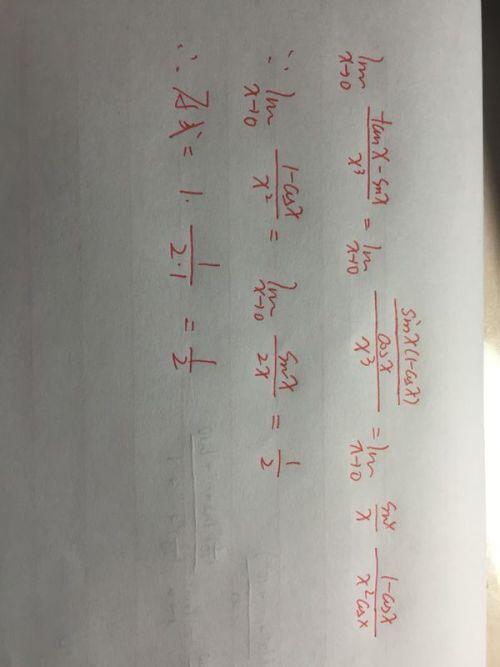 lim x→0 (tanx - sinx)/x³ = lim x→0 (sinx(1-cosx)/cosx)/x³ = lim x→0 sinx/x (1-cosx)/(x²cosx)
∵ lim x→0 (1-cosx)/x² = lim x→0 sinx/2x = 1/2
∴ 原式 = 1 · 1/(2·1) = 1/2